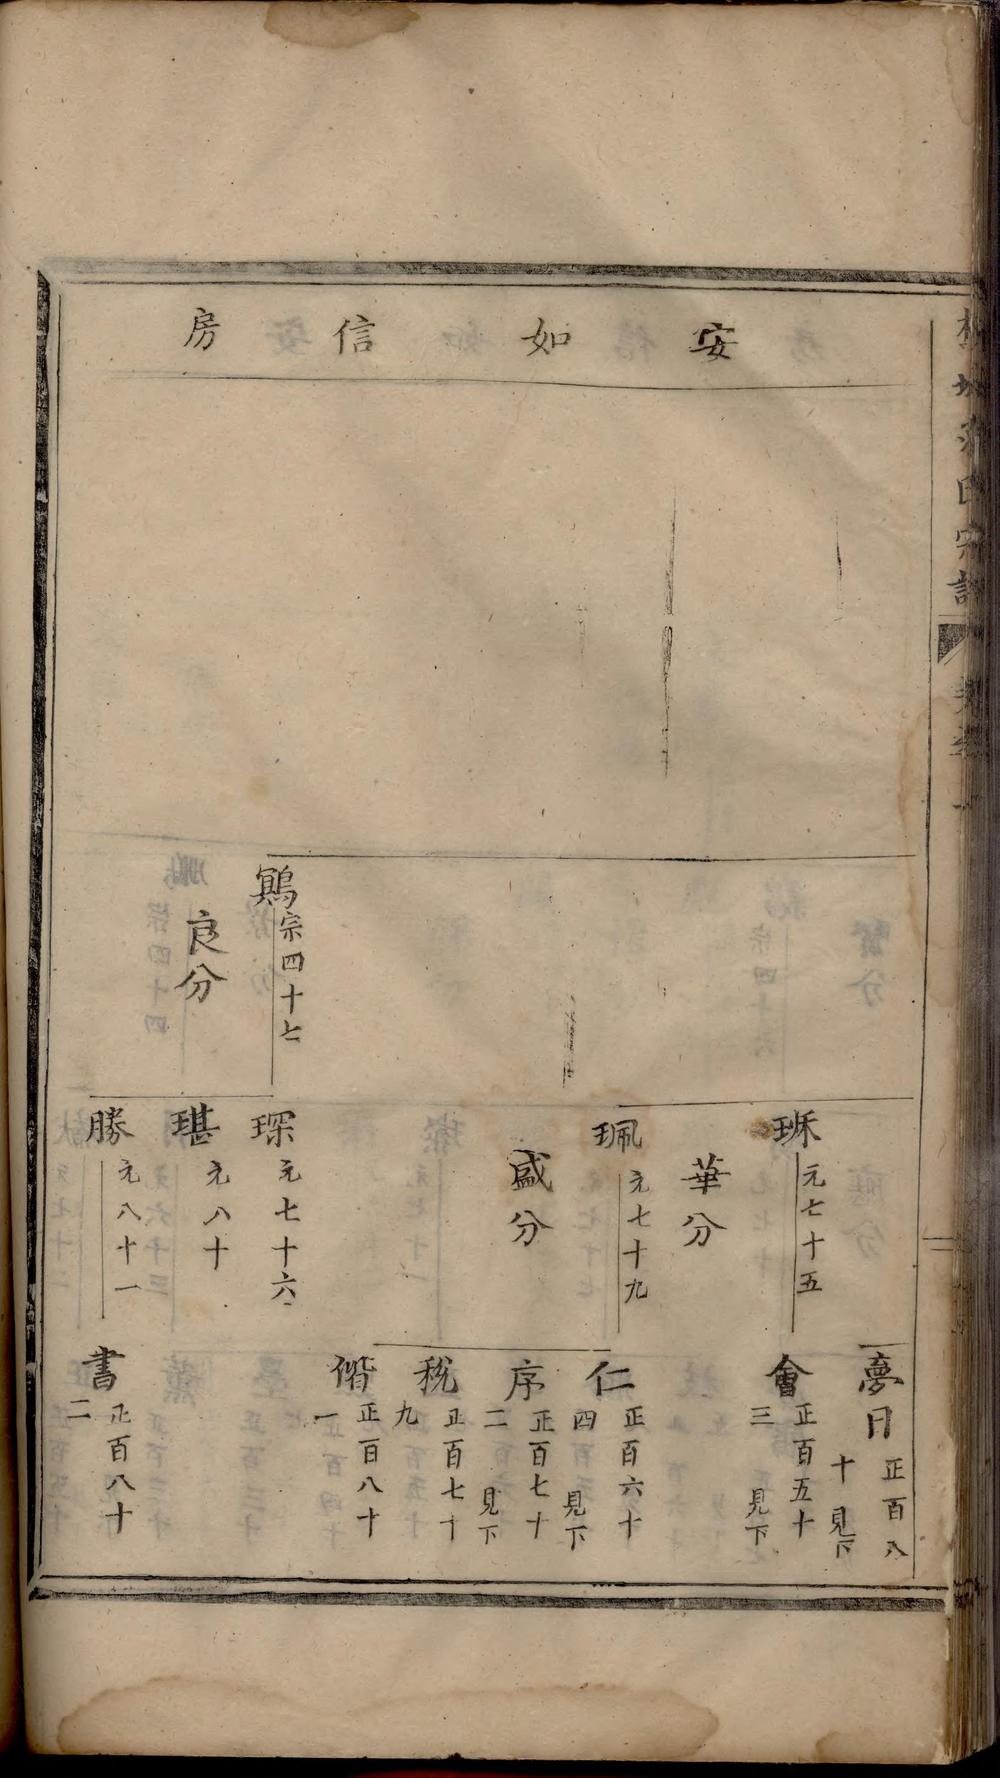 安如信房
鶏宗四十七
良分
琢元七十五
華分
珮元七十九
盛分
琛元七十六
琪元八十
勝元八十一
夢日正百八十見下
會正百五十三見下
仁正百六十四見下
序正百七十二見下
稅正百七十九
偺正百八十一
書正百八十二
氏宗譜